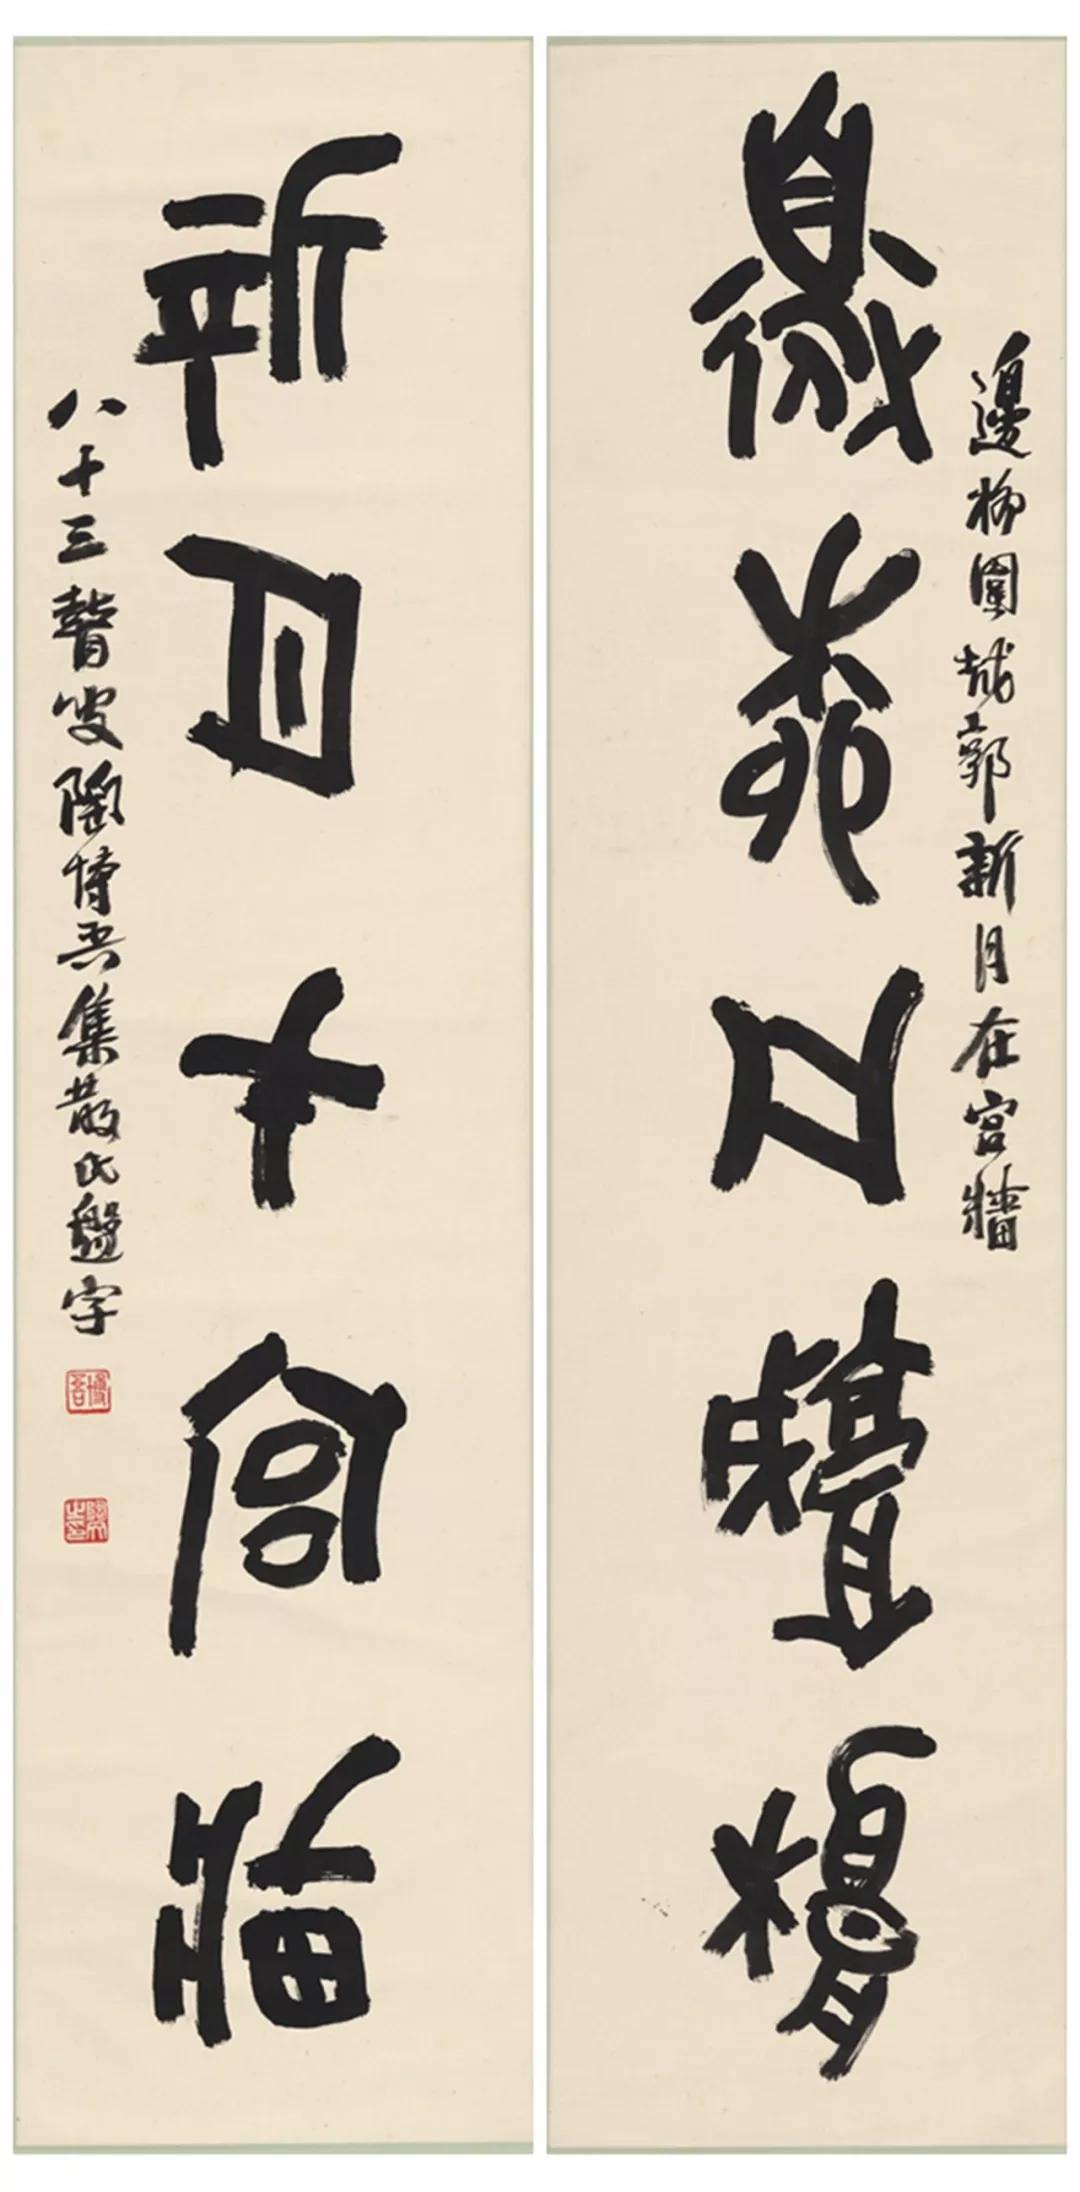 邊柳圍城郭
新月在宮牆
邊柳圍城郭新月在宮牆
八十三瞽叟陶博吾集散氏盤字
博吾